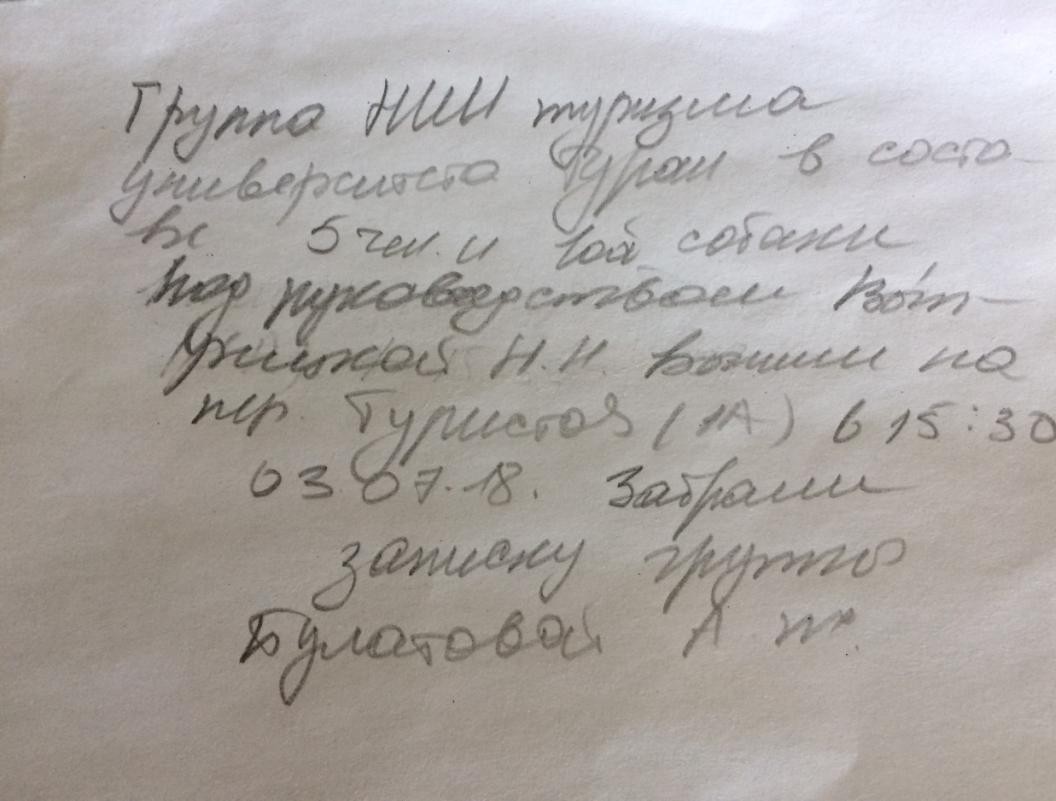 Группа НИИ туризма
университета Туран в соста-
ве 5 чел. и 1ой собаки
под руководством
Н.Н. взошли на
пер. Туристов (1А) в 15:30
03.07.18. Забрали
записку группы
Булатовой А